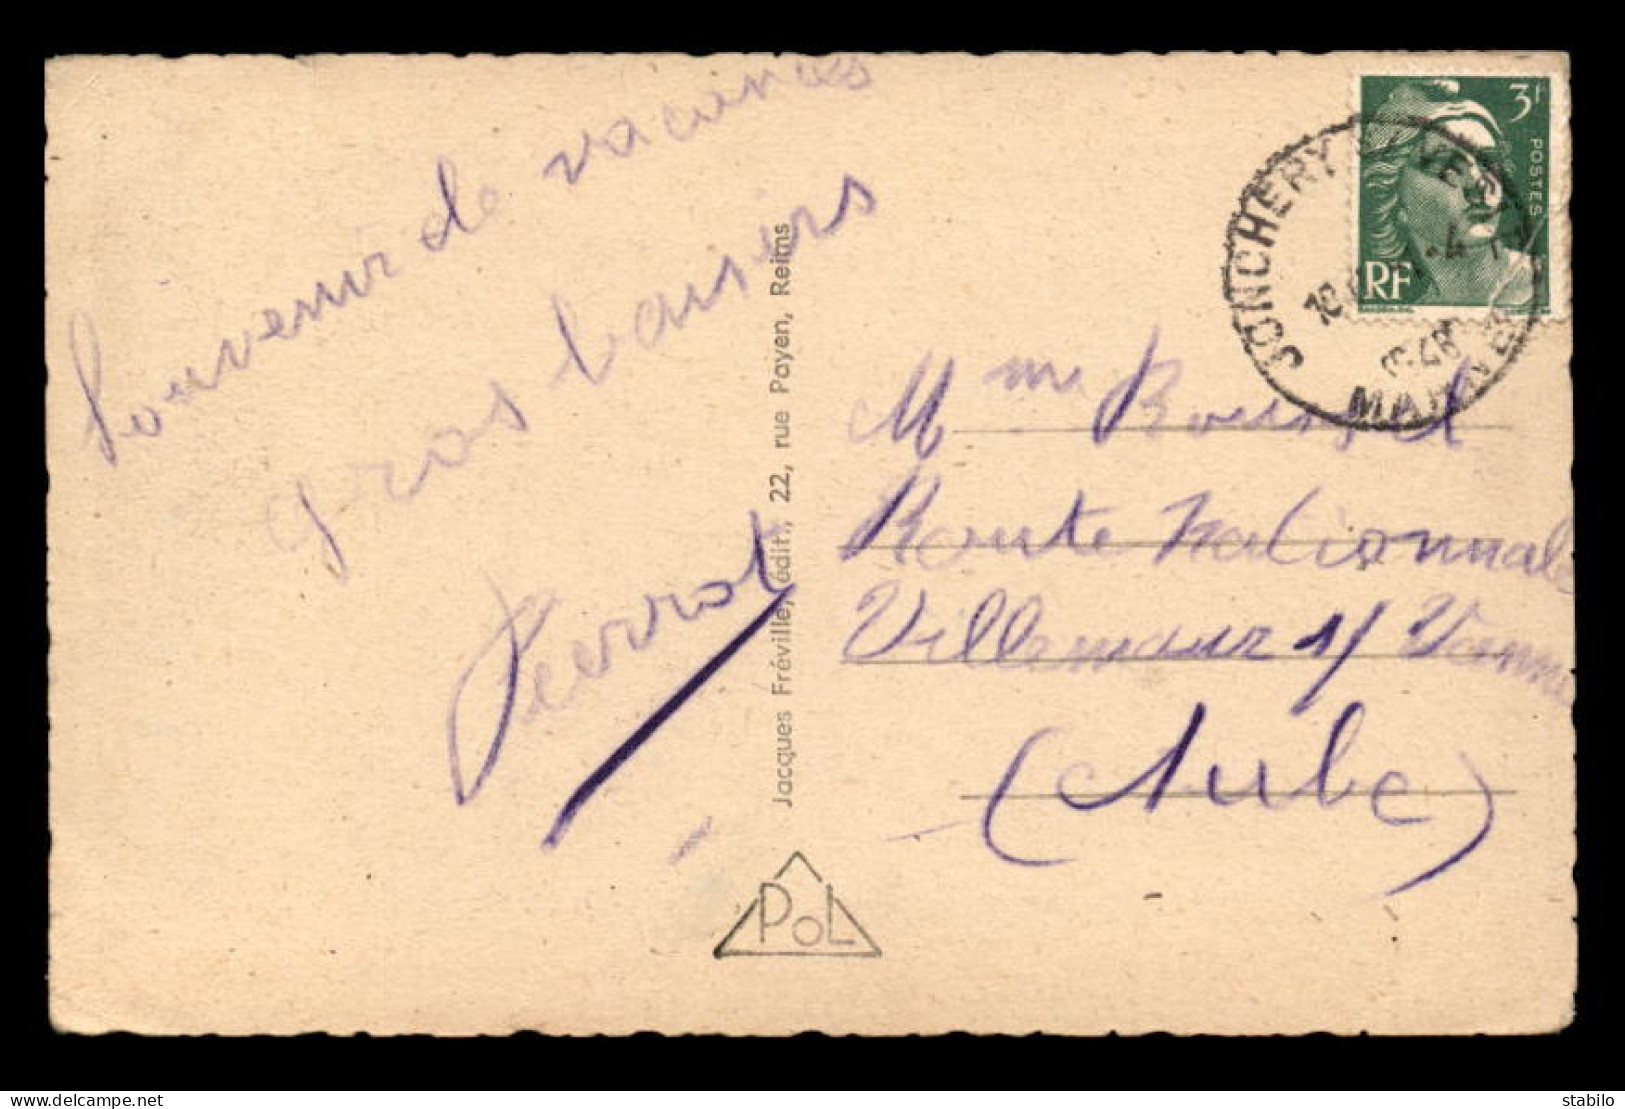 Souvenir de vacances
gros baisers
Pierrot
Jacques Fréville, édit., 22, rue Payen, Reims
PoL
3F
POSTES
RF
JONCHERY S/ VESLE
18
4
48
MARNE
Mme
Route Nationale
Villemaur s/ Vanne
(Aube)
stabilo